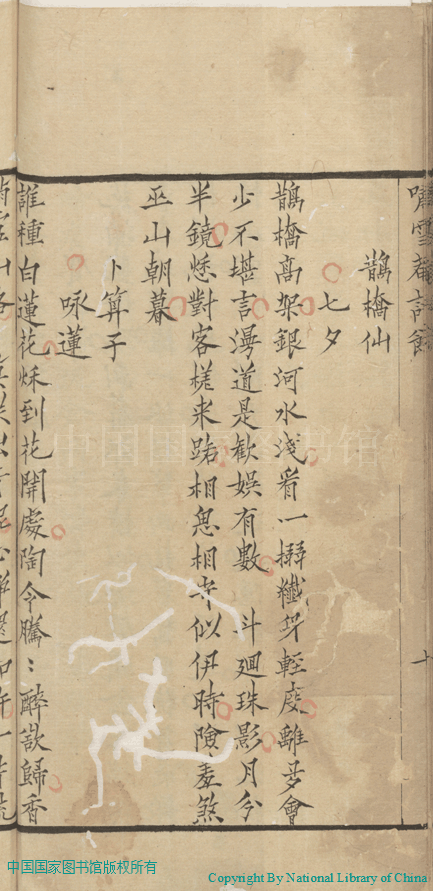 嘯雪菴詩餘
鵲橋仙
七夕
鵲橋高架銀河水淺看一搦纖身輕度離多會
少不堪言漫道是歡娛有數 斗迴珠影月分
半鏡愁對客槎来路相思相 似伊時險羞煞
巫山朝暮
卜筭子
咏蓮
誰種白蓮花秌到花開處陶令騰〻醉欲歸香
十
中国国家图书馆
中国国家图书馆版权所有
Copyright By National Library of China